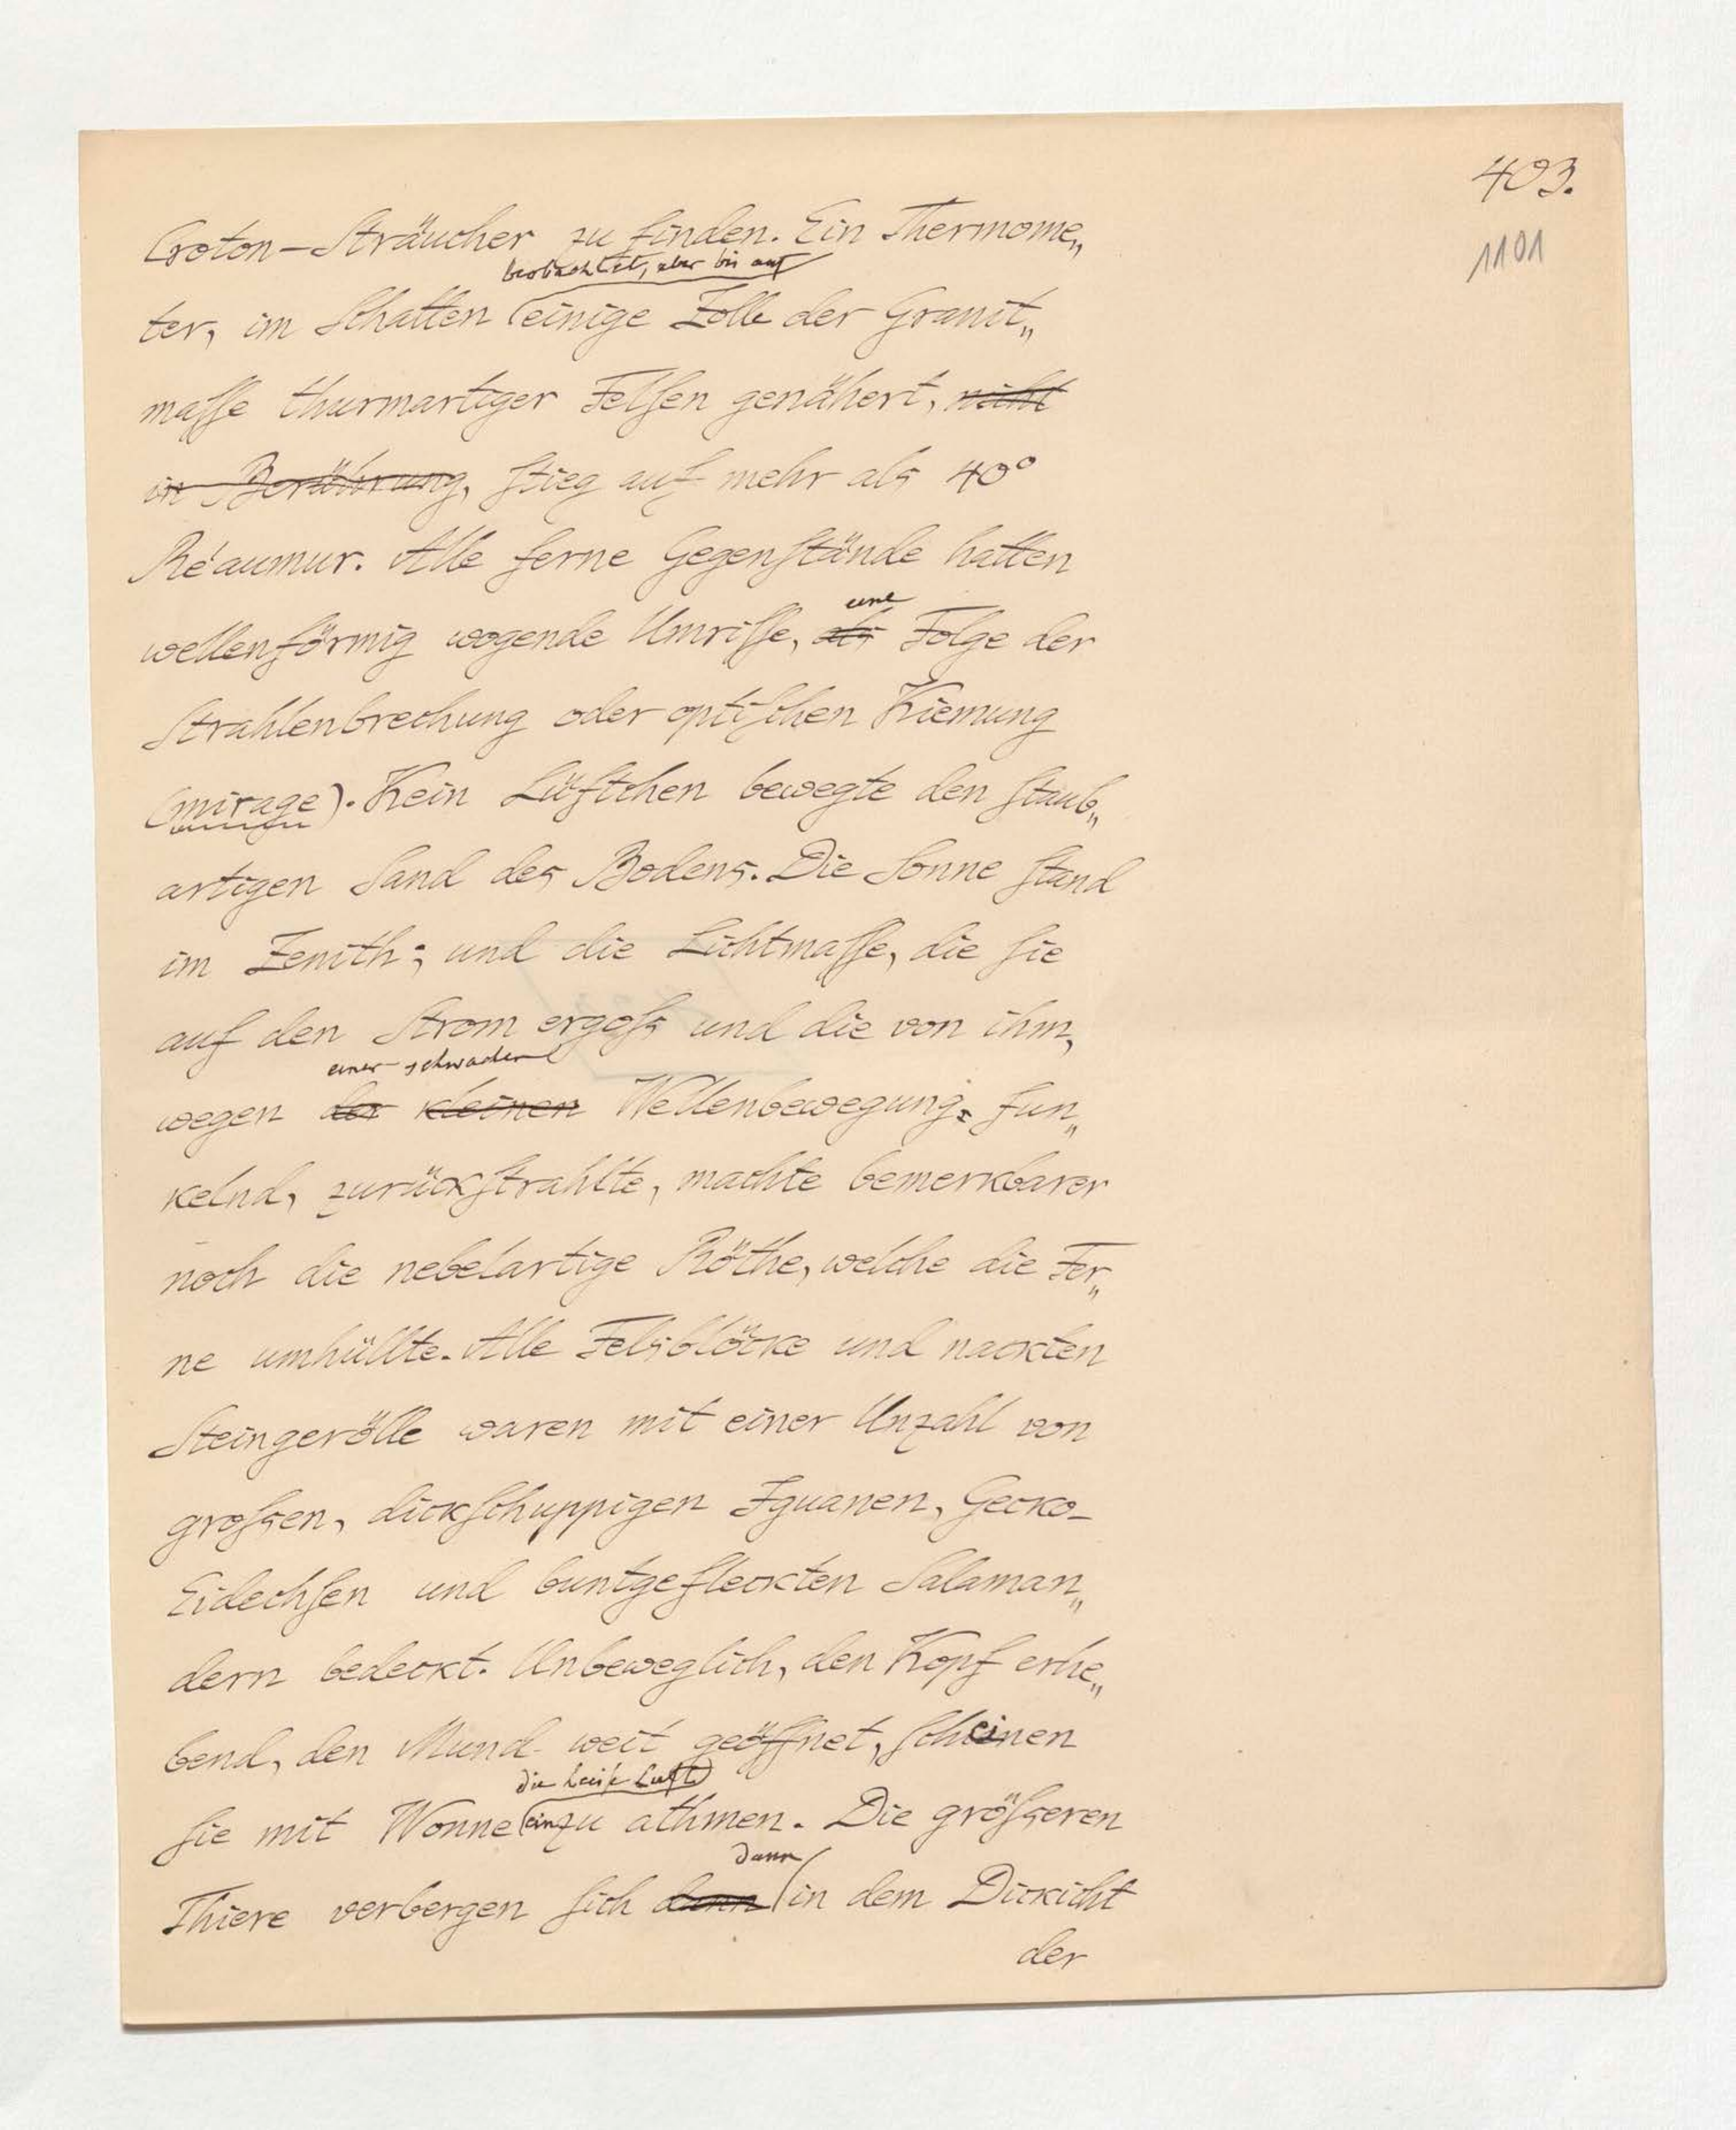 403.
1101
Croton-Sträucher zu finden. Ein Thermome„
beobachtet, aber bis auf
ter, im Schatten einige Zolle der Granit„
masse thurmartiger Felsen genähert, nicht
in Berührung, stieg auf mehr als 40°
Réaumur. Alle ferne Gegenstände hatten
eine
wellenförmig wogende Umrisse, als Folge der
Strahlenbrechung oder optischen Kiemung
(mirage). Kein Lüftchen bewegte den staub„
artigen Sand des Bodens. Die Sonne stand
im Zenith; und die Lichtmasse, die sie
auf den Strom ergoß und die von ihm,
einer schwachen
wegen der kleinen Wellenbewegung, fun„
kelnd, zurückstrahlte, machte bemerkbarer
noch die nebelartige Röthe, welche die Fer„
ne umhüllte. Alle Felsblöcke und nackten
Steingerölle waren mit einer Unzahl von
großen, dickschuppigen Iguanen, Gecko-
Eidechsen und buntgefleckten Salaman„
dern bedeckt. Unbeweglich, den Kopf erhe„
bend, den Mund weit geöffnet, scheinen
die heiße Luft
sie mit Wonne einzu athmen. Die größeren
dann
Thiere verbergen sich dann in dem Dickicht
der